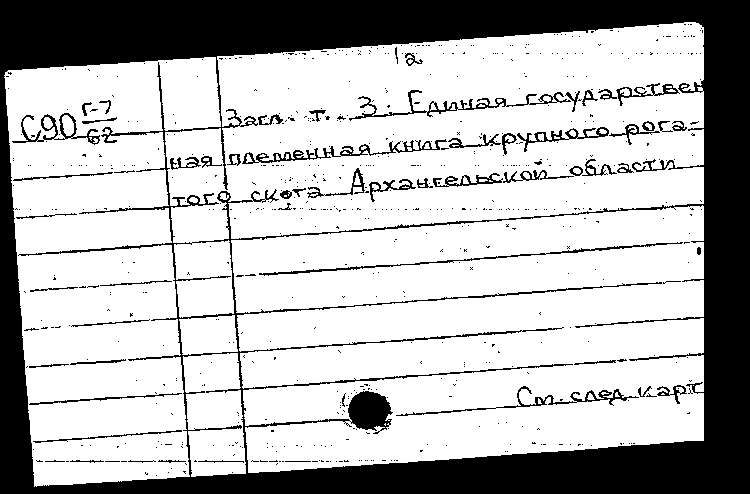 2
С90 Г-7/62
Загл. т. 3: Единая государствен
ная племенная книга крупного рога-
того скота Архангельской области
См. след. карт